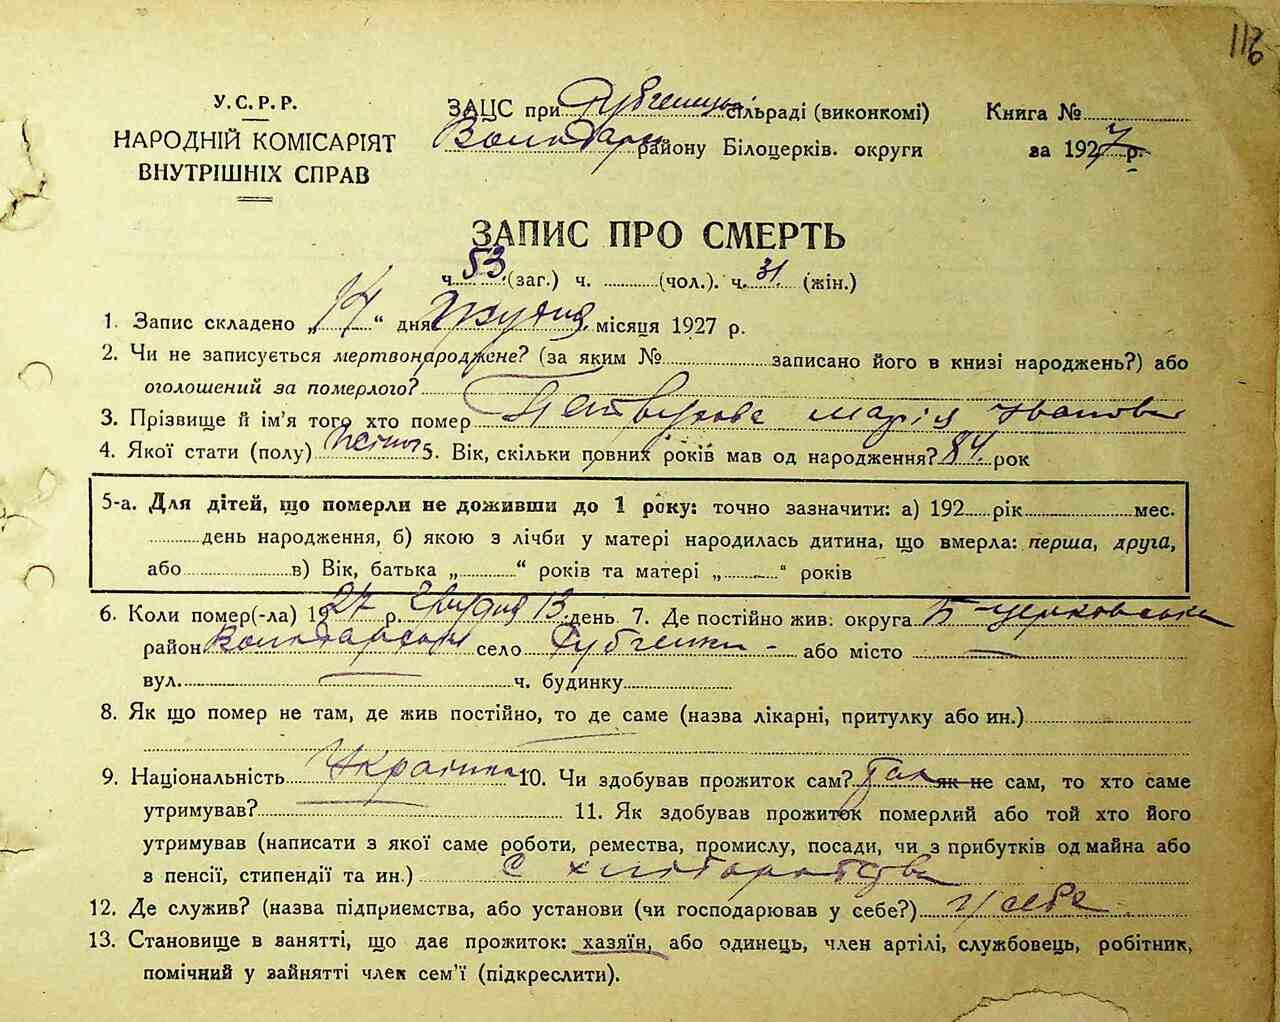 116
У.С.Р.Р.
НАРОДНІЙ КОМІСАРІЯТ
ВНУТРІШНІХ СПРАВ
ЗАЦС при сільраді (виконкомі)
району Білоцерків. округи
Книга №
за 1927 р.
ЗАПИС ПРО СМЕРТЬ
ч. 53. (заг.) ч. (чол.). ч. 31. (жін.)
1. Запис складено „ 14 “ дня Грудня місяця 1927 р.
2. Чи не записується мертвонароджене? (за яким № записано його в книзі народжень?) або
оголошений за померлого?
3. Прізвище й ім'я того хто помер Марія Іванов
4. Якої стати (полу) жіноч 5. Вік, скільки повних років мав од народження? 84 рок
5-а. Для дітей, що померли не доживши до 1 року: точно зазначити: а) 192 рік мес.
день народження, б) якою з лічби у матері народилась дитина, що вмерла: перша, друга,
або в) Вік, батька „ “ років та матері „ “ років
6. Коли помер(-ла) 1927 р. Грудня 13 день 7. Де постійно жив: округа Б-церковська
район Володарськ село Рубченки - або місто —
вул. ч. будинку
8. Як що помер не там, де жив постійно, то де саме (назва лікарні, притулку або ин.)
9. Національність Українка 10. Чи здобував прожиток сам? Так як не сам, то хто саме
утримував? 11. Як здобував прожиток померлий або той хто його
утримував (написати з якої саме роботи, ремества, промислу, посади, чи з прибутків од майна або
з пенсії, стипендії та ин.) С хліборобства
12. Де служив? (назва підприємства, або установи (чи господарював у себе?) У себе
13. Становище в занятті, що дає прожиток: хазяїн, або одинець, член артілі, службовець, робітник,
помічний у зайнятті член сем'ї (підкреслити).